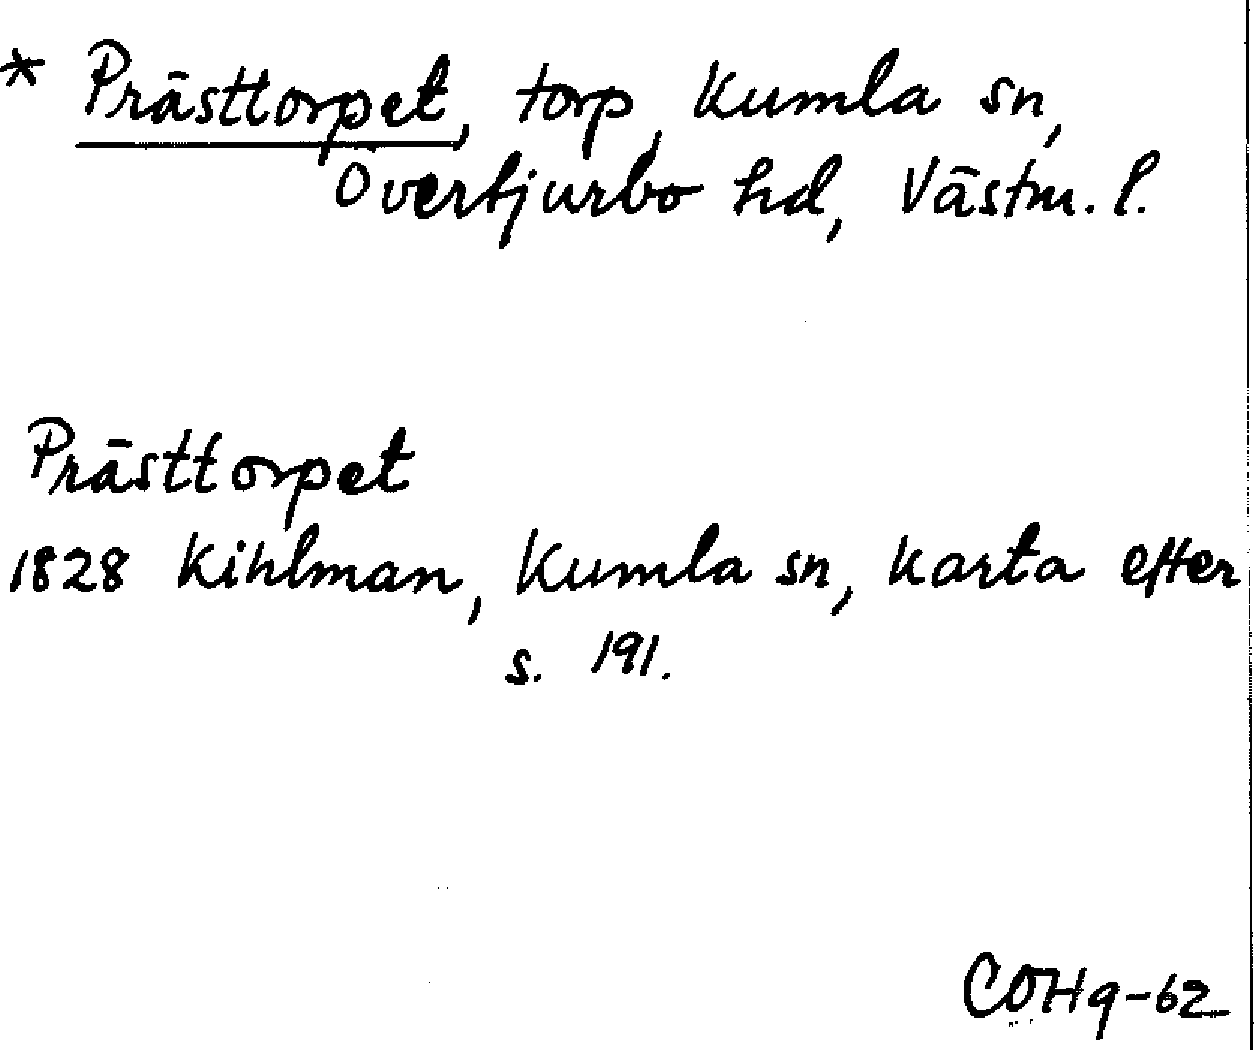 * Prästtorpet, torp, Kumla sn,
Övertjurbo hd, Västm. l.
Prästtorpet
1828 Kihlman, Kumla sn, karta efter
s. 191.
COHq-62